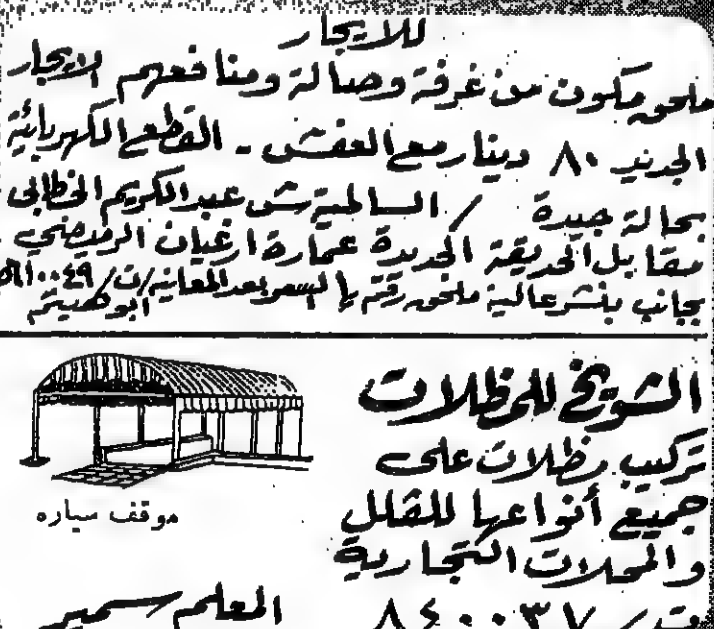 للايجار
ملحق مكون من غرفة وصالة ومنافعهم الايجار
الجديد ٨٠ دينار مع العفش - القطع الكهربائية
بحالة جيدة / السالمية ش عبدالكريم الخطابي
مقابل الحديقة الجديدة عمارة ارغيان الرميضي
بجانب بنشر عالية ملحق رقم السعر بعد المعاينة / ت /
ابو هيثم
الشويخ للمظلات
تركيب مظلات على
جميع أنواعها للفلل
والمحلات التجارية
موقف سياره
ت / ٨٤٠٠٣٧ المعلم سمير